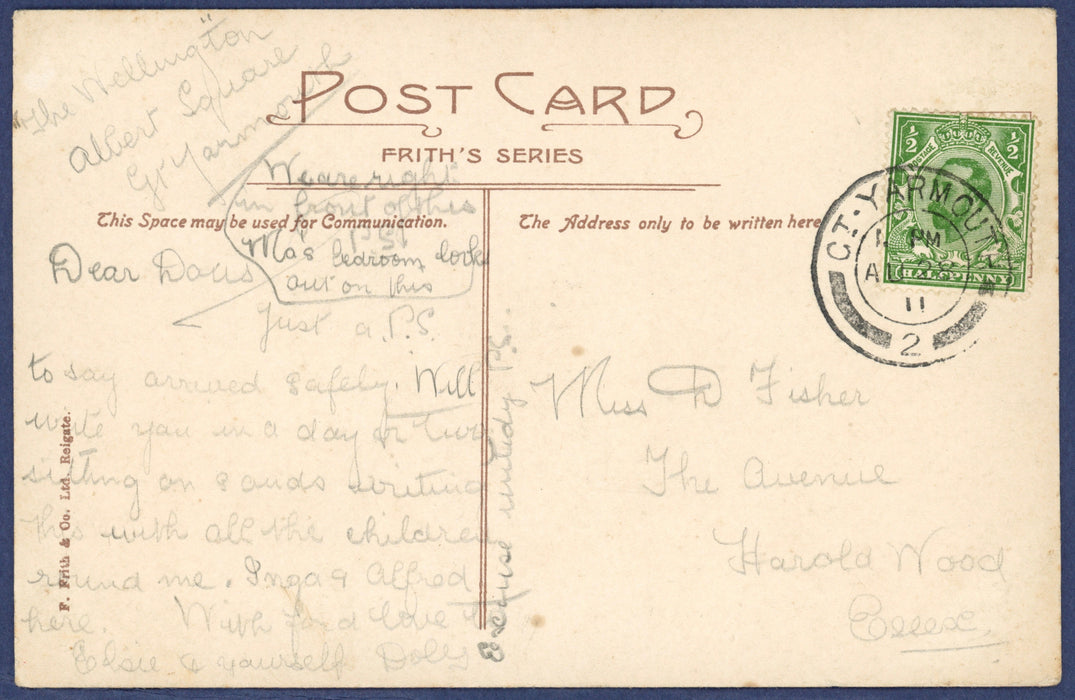 "The Wellington"
Albert Square
Gt Yarmouth
POST CARD
FRITH'S SERIES
We are right
in front of this
P.S!
Ma's bedroom looks
out on this
This Space may be used for Communication.
The Address only to be written here
Dear Dolls
Just a P.S.
to say arrived safely. Will
write you in a day or two
sitting on sands writing
this with all the children
round me. Inga & Alfred
here. With fond love to
Elsie & yourself Dolls
Excuse untidy P.S.
F. Frith & Co. Ltd. Reigate.
½ ½
POSTAGE REVENUE
HALFPENNY
GT. YARMOUTH
PM
AU 8
11
2
Miss D Fisher
The Avenue
Harold Wood
Essex.